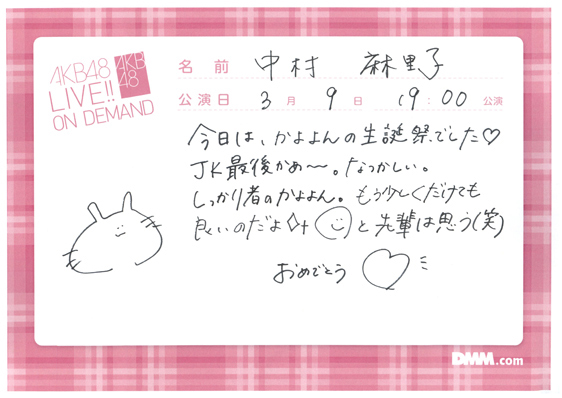 AKB48
LIVE!!
ON DEMAND
AKB
48
名前 中村 麻里子
公演日 3月9日 19:00公演
今日は、かよよんの生誕祭でした♡
JK最後かぁ〜。なつかしい。
しっかり者のかよよん。もう少しくだけても
良いのだよ と先輩は思う(笑)
おめでとう
DMM.com